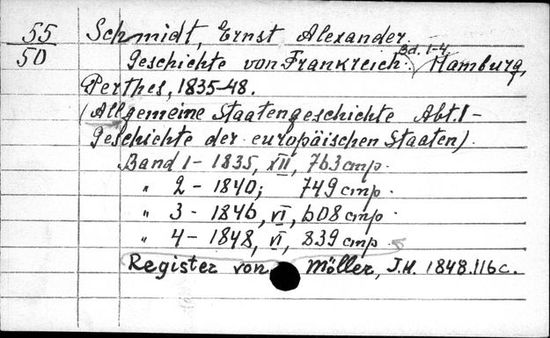 55
50
Schmidt, Ernst Alexander.
Geschichte von Frankreich. Bd. 1-4 Hamburg,
Perthes, 1835-48.
(Allgemeine Staatengeschichte Abt. I -
Geschichte der europäischen Staaten).
Band 1 - 1835, XII, 763 стр.
„ 2 - 1840; 749 стр.
„ 3 - 1846, VI, 608 стр.
„ 4 - 1848, VI, 839 стр.
Register von Möller, J.H. 1848. 116 с.